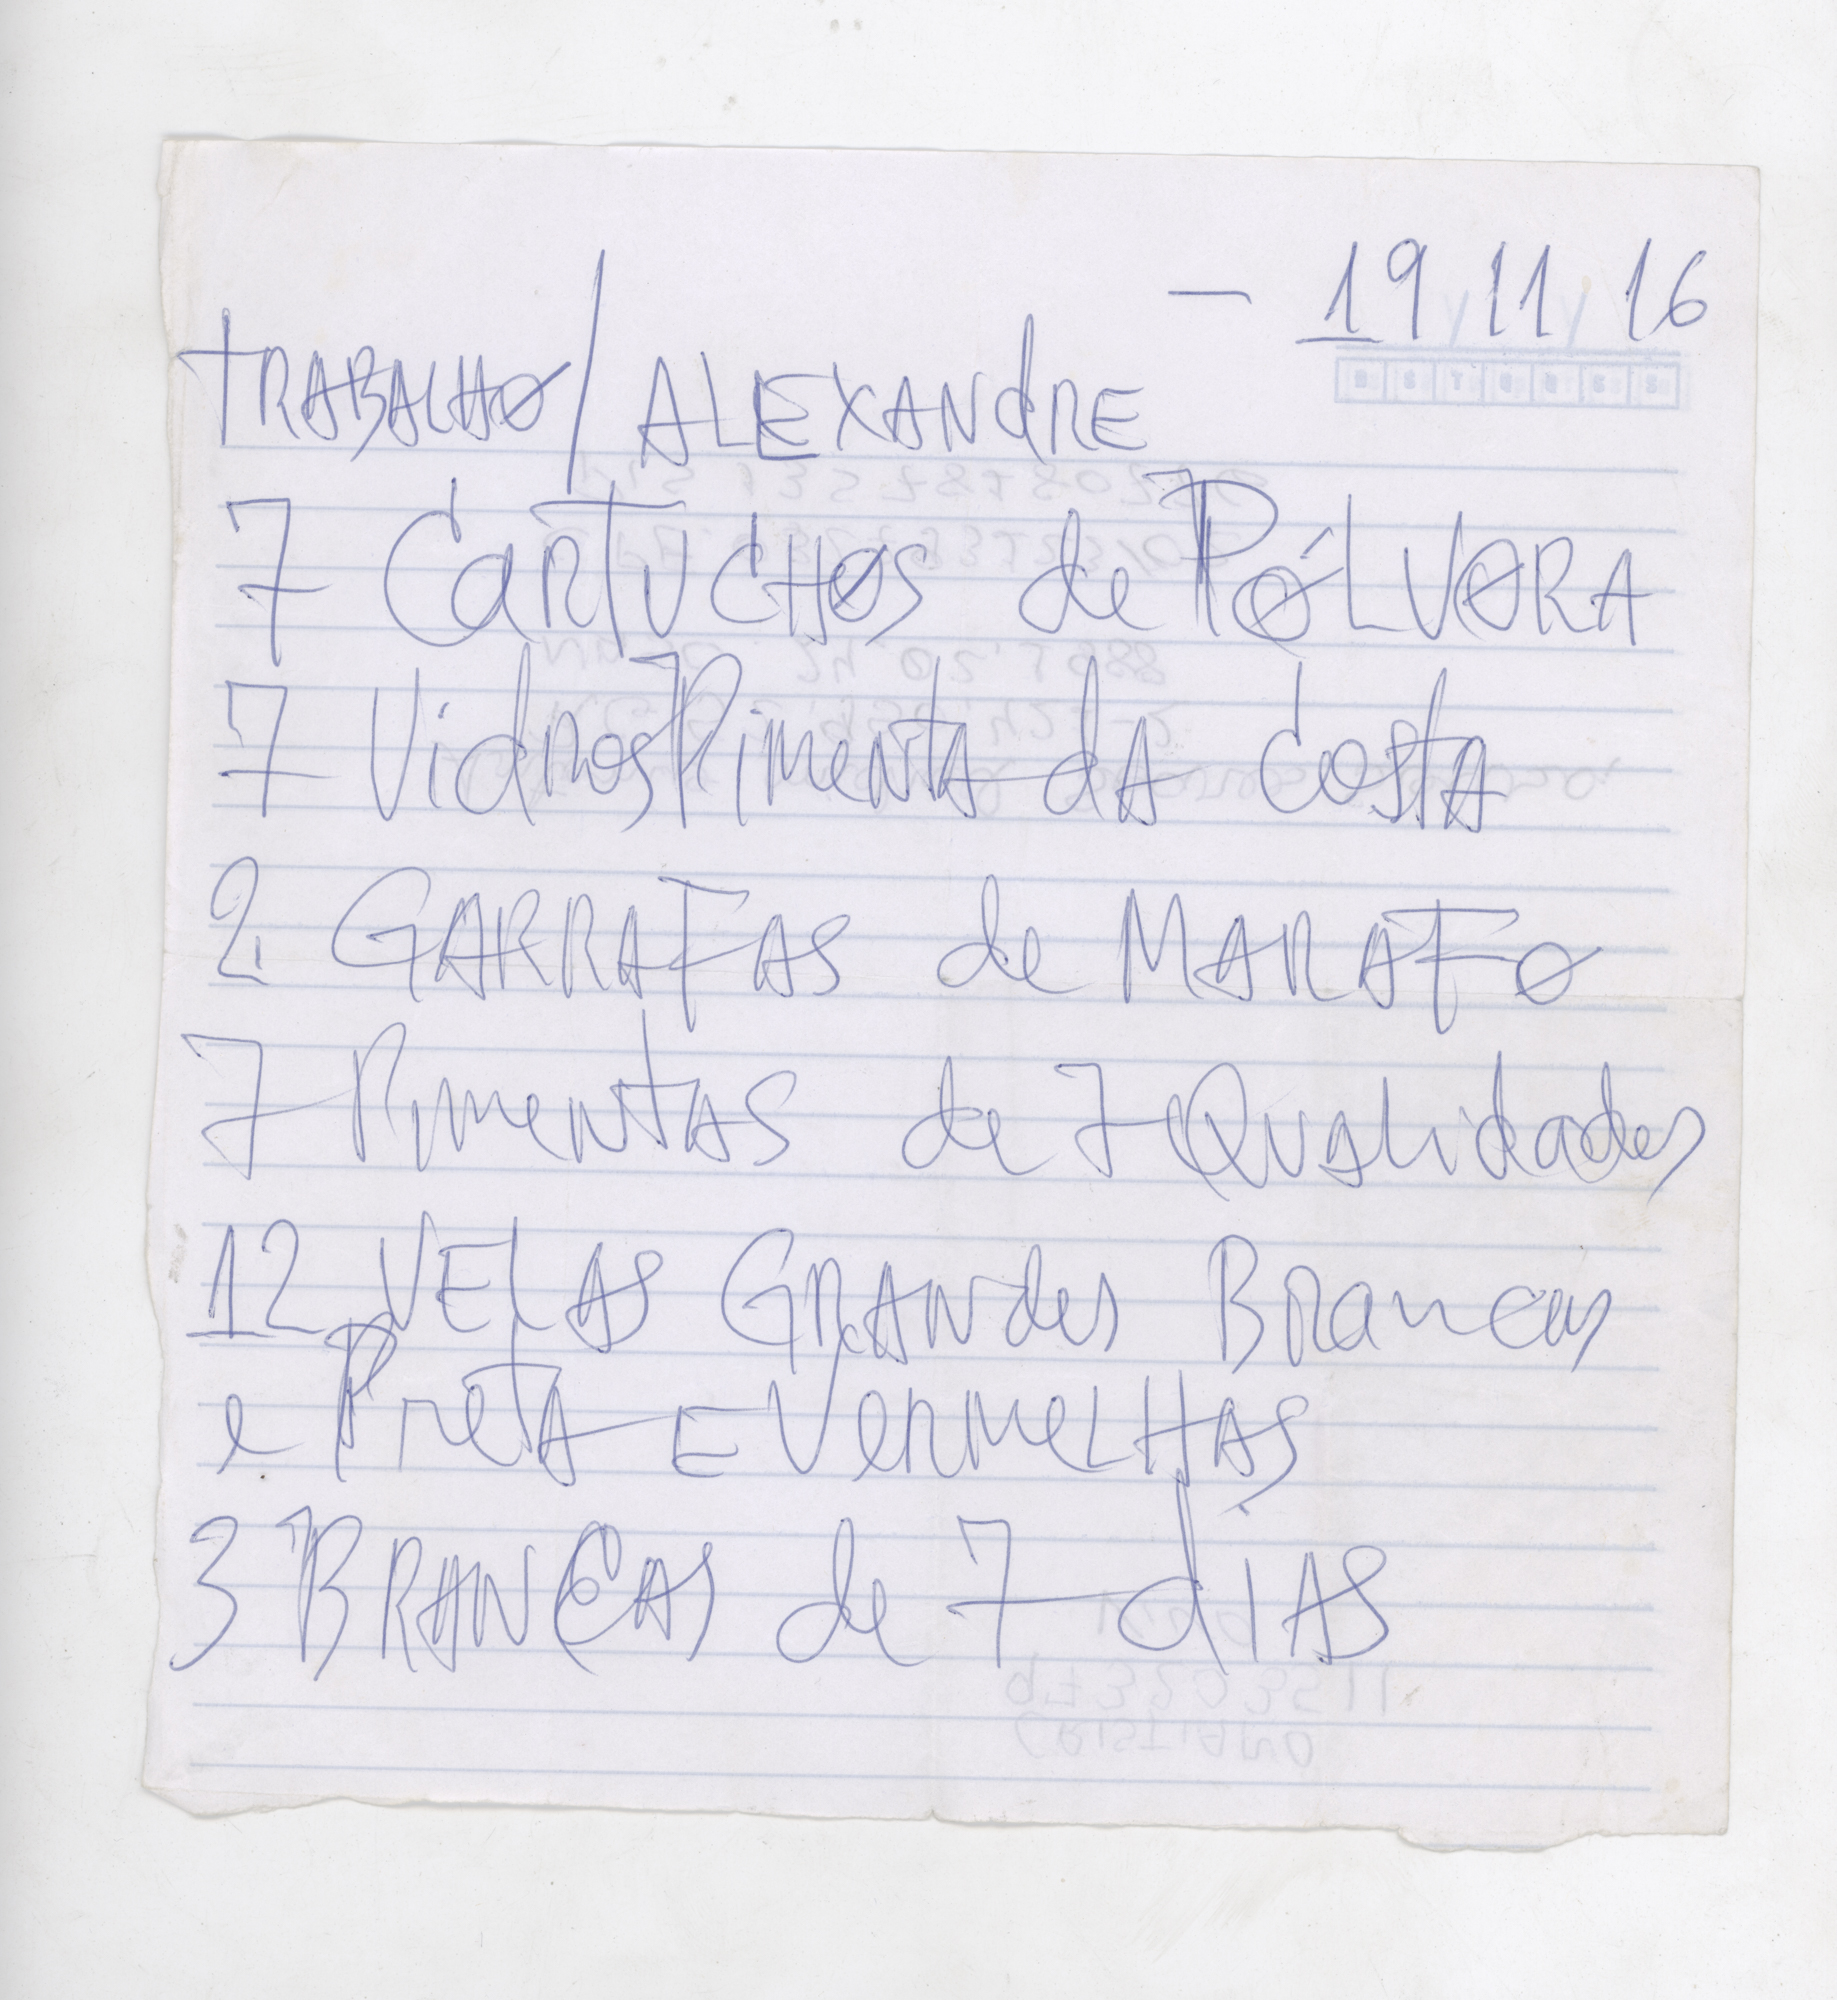 — 19/11/16
TRABALHO/ALEXANDRE
7 CARTUCHOS de PÓLVORA
7 Vidros Pimenta da Costa
2 GARRAFAS de MARAFO
7 Pimentas de 7 Qualidades
12 VELAS GRANdes Brancas
e Preta E VermeLHAS
3 BRANCAS de 7 dIAS